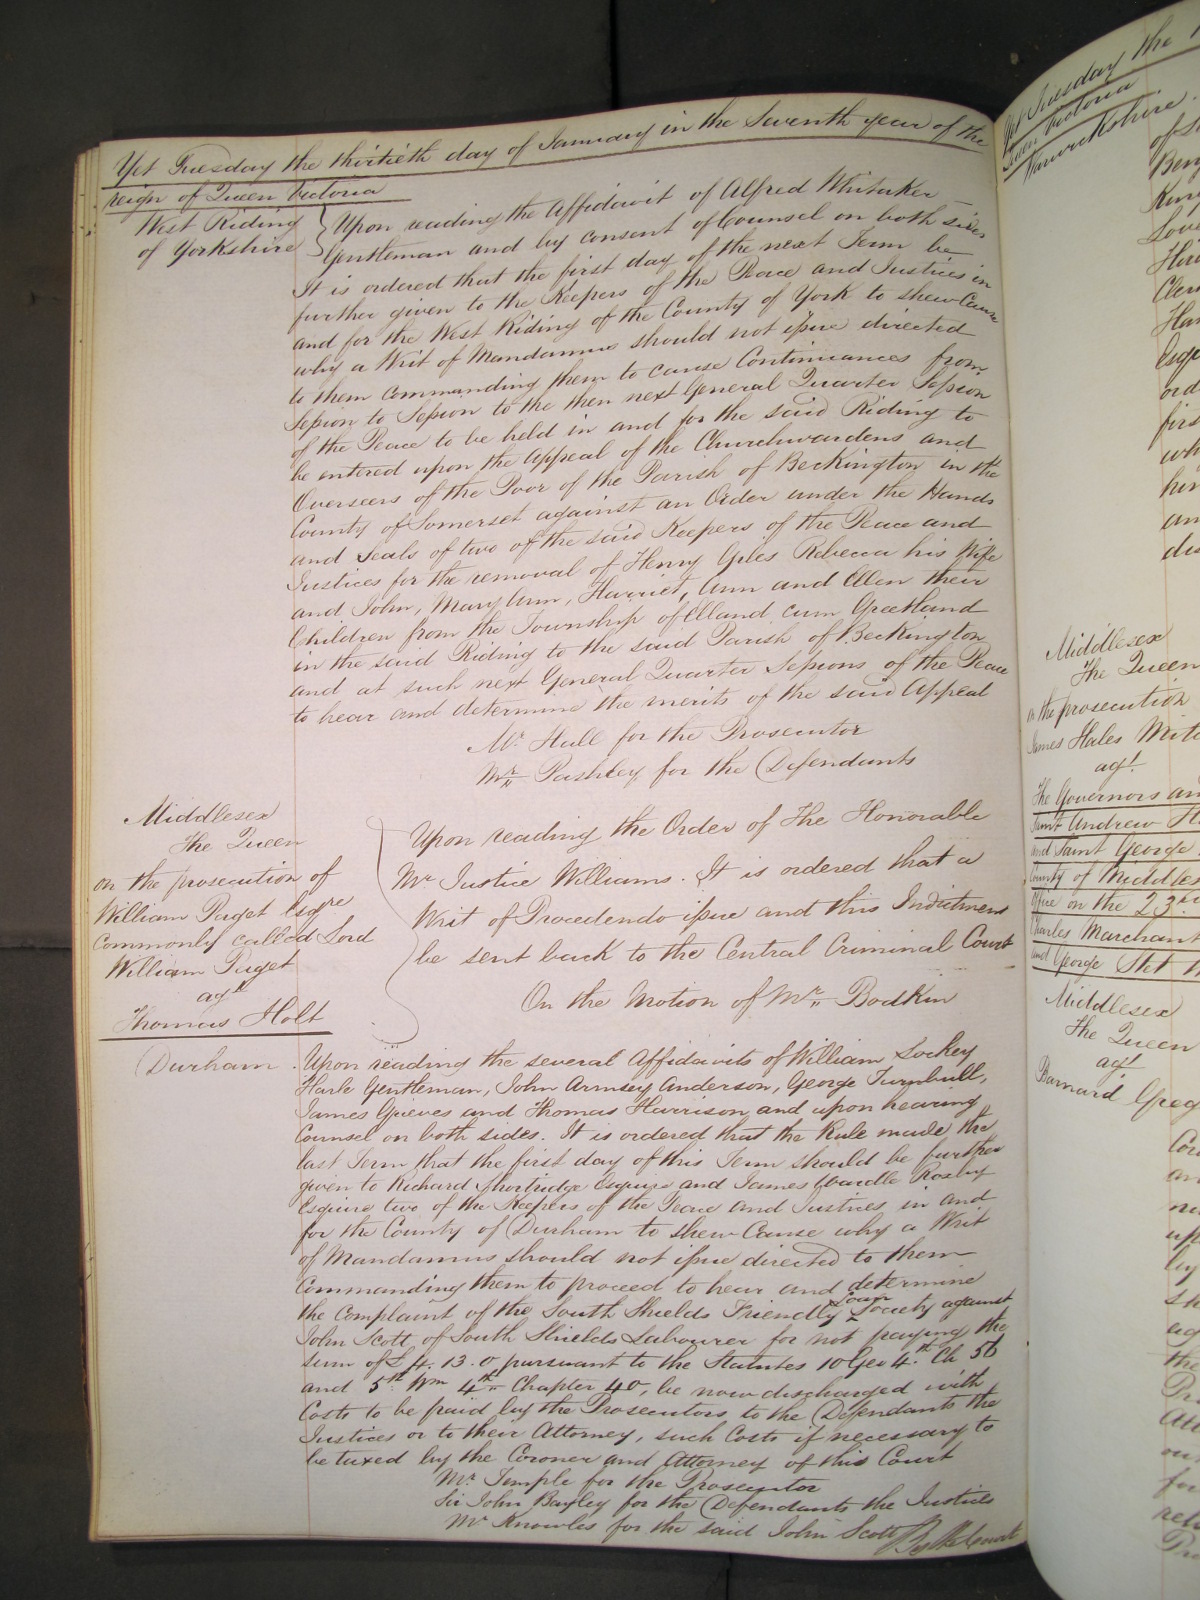 Yet Tuesday the thirtieth day of January in the Seventh year of the
reign of Queen Victoria
West Riding
of Yorkshire
Upon reading the Affidavit of Alfred Whitaker
Gentleman and by consent of Counsel on both sides
It is ordered that the first day of the next Term be
further given to the Keepers of the Peace and Justices in
and for the West Riding of the County of York to shew Cause
why a Writ of Mandamus should not issue directed
to them commanding them to cause Continuances from
Session to Session to the then next General Quarter Session
of the Peace to be held in and for the said Riding to
be entered upon the Appeal of the Churchwardens and
Overseers of the Poor of the Parish of Beckington in the
County of Somerset against an Order under the Hands
and Seals of two of the said Keepers of the Peace and
Justices for the removal of Henry Giles Rebecca his Wife
and John, Mary Ann, Harriet, Ann and Ellen their
Children from the Township of Elland cum Greetland
in the said Riding to the said Parish of Beckington
and at such next General Quarter Sessions of the Peace
to hear and determine the merits of the said Appeal
Mr. Hall for the Prosecutor
Mr. Pashley for the Defendants
Middlesex
The Queen
on the prosecution of
William Paget Esqre
Commonly called Lord
William Paget
agt
Thomas Holt
Upon reading the Order of The Honorable
Mr Justice Williams. It is ordered that a
Writ of Procedendo issue and this Indictment
be sent back to the Central Criminal Court
On the Motion of Mr. Bodkin
Durham
Upon reading the several Affidavits of William Lockey
Harle Gentleman, John Armsey Anderson, George Turnbull,
James Grieves and Thomas Harrison and upon hearing
Counsel on both sides. It is ordered that the Rule made the
last Term that the first day of this Term should be further
given to Richard Shortridge Esquire and James Wardle Roxby
Esquire two of the Keepers of the Peace and Justices in and
for the County of Durham to shew Cause why a Writ
of Mandamus should not issue directed to them
Commanding them to proceed to hear and determine
the Complaint of the South Shields Friendly Loan Society against
John Scott of South Shields Labourer for not paying the
sum of £4. 13. 0 pursuant to the Statutes 10 Geo 4.th Ch 56
and 5th Wm 4th Chapter 40, be now discharged with
Costs to be paid by the Prosecutors to the Defendants the
Justices or to their Attorney, such Costs if necessary to
be taxed by the Coroner and Attorney of this Court
Mr. Temple for the Prosecutor
Sir John Bayley for the Defendants the Justices
Mr Knowles for the said John Scott By the Court
Yet Tuesday the
Queen Victoria
Warwickshire
Middlesex
The Queen
on the prosecution
James Hales
agt
The Governors an
Saint Andrew
and Saint George
County of Middlesex
Office on the 23rd
Charles Marchant
and George
Middlesex
The Queen
agt
Barnard Greg